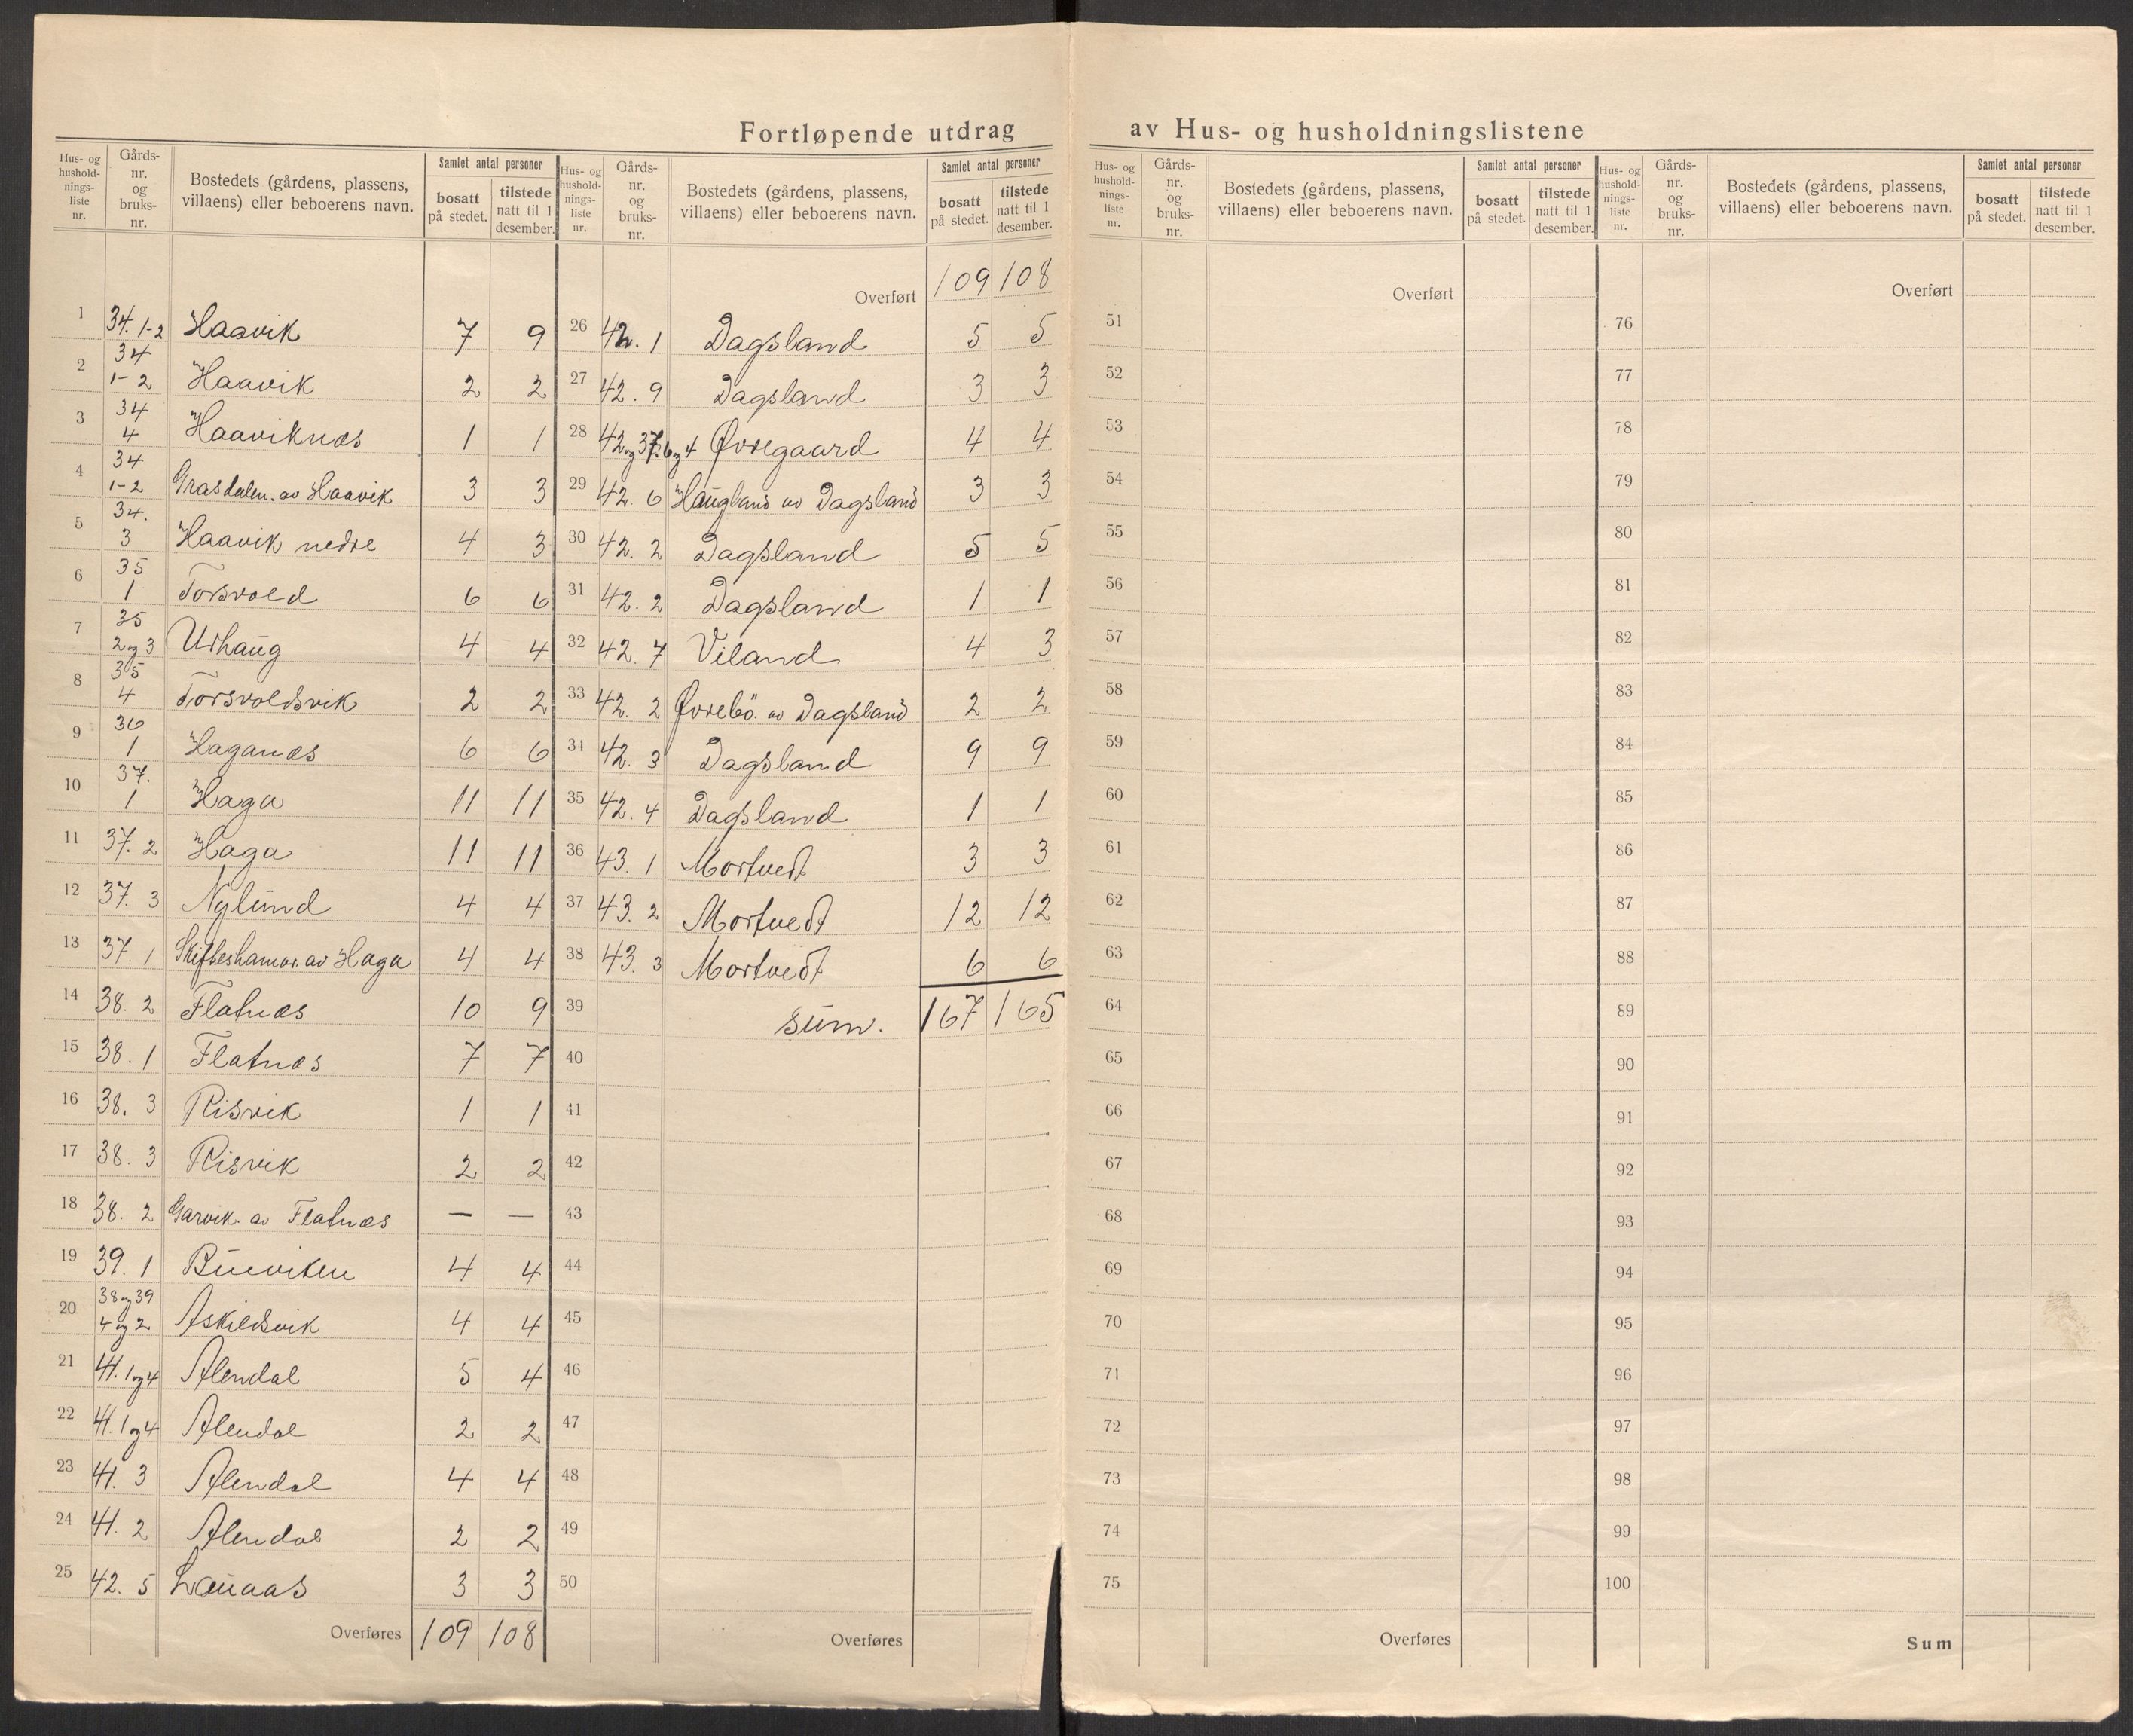 Fortløpende utdrag av Hus- og husholdningslistene
Hus- og husholdningsliste nr. | Gårds- nr. og bruks- nr. | Bostedets (gårdens, plassens, villaens) eller beboerens navn. | Samlet antal personer bosatt på stedet. | tilstede natt til 1 desember.
1 34. 1-2 Haavik 7 9
2 34 1-2 Haavik 2 2
3 34 4 Haaviknæs 1 1
4 34 1-2 Grasdalen. av Haavik 3 3
5 34. 3 Haavik nedre 4 3
6 35 1 Torsvold 6 6
7 35 2 og 3 Urhaug 4 4
8 35 4 Torsvoldsvik 2 2
9 36 1 Haganæs 6 6
10 37. 1 Haga 11 11
11 37. 2 Haga 11 11
12 37. 3 Nylund 4 4
13 37. 1 Skifteshamar. av Haga 4 4
14 38. 2 Flatnæs 10 9
15 38. 1 Flatnæs 7 7
16 38. 3 Risvik 1 1
17 38. 3 Risvik 2 2
18 38. 2 Garvik. av Flatnæs — —
19 39. 1 Bueviken 4 4
20 38 og 39 4 og 2 Askildsvik 4 4
21 41. 1 og 4 Alendal 5 4
22 41. 1 og 4 Alendal 2 2
23 41. 3 Alendal 4 4
24 41. 2 Alendal 2 2
25 42. 5 Lauaas 3 3
Overføres 109 108
Hus- og husholdningsliste nr. | Gårds- nr. og bruks- nr. | Bostedets (gårdens, plassens, villaens) eller beboerens navn. | Samlet antal personer bosatt på stedet. | tilstede natt til 1 desember.
Overført 109 108
26 42. 1 Dagsland 5 5
27 42. 9 Dagsland 3 3
28 42 og 37. 6 og 4 Øvregaard 4 4
29 42. 6 Haugland av Dagsland 3 3
30 42. 2 Dagsland 5 5
31 42. 2 Dagsland 1 1
32 42. 7 Viland 4 3
33 42. 2 Øvrebö. av Dagsland 2 2
34 42. 3 Dagsland 9 9
35 42. 4 Dagsland 1 1
36 43. 1 Mortvedt 3 3
37 43. 2 Mortvedt 12 12
38 43. 3 Mortvedt 6 6
39 sum. 167 165
40
41
42
43
44
45
46
47
48
49
50
Overføres
Hus- og husholdningsliste nr. | Gårds- nr. og bruks- nr. | Bostedets (gårdens, plassens, villaens) eller beboerens navn. | Samlet antal personer bosatt på stedet. | tilstede natt til 1 desember.
Overført
51
52
53
54
55
56
57
58
59
60
61
62
63
64
65
66
67
68
69
70
71
72
73
74
75
Overføres
Hus- og husholdningsliste nr. | Gårds- nr. og bruks- nr. | Bostedets (gårdens, plassens, villaens) eller beboerens navn. | Samlet antal personer bosatt på stedet. | tilstede natt til 1 desember.
Overført
76
77
78
79
80
81
82
83
84
85
86
87
88
89
90
91
92
93
94
95
96
97
98
99
100
Sum